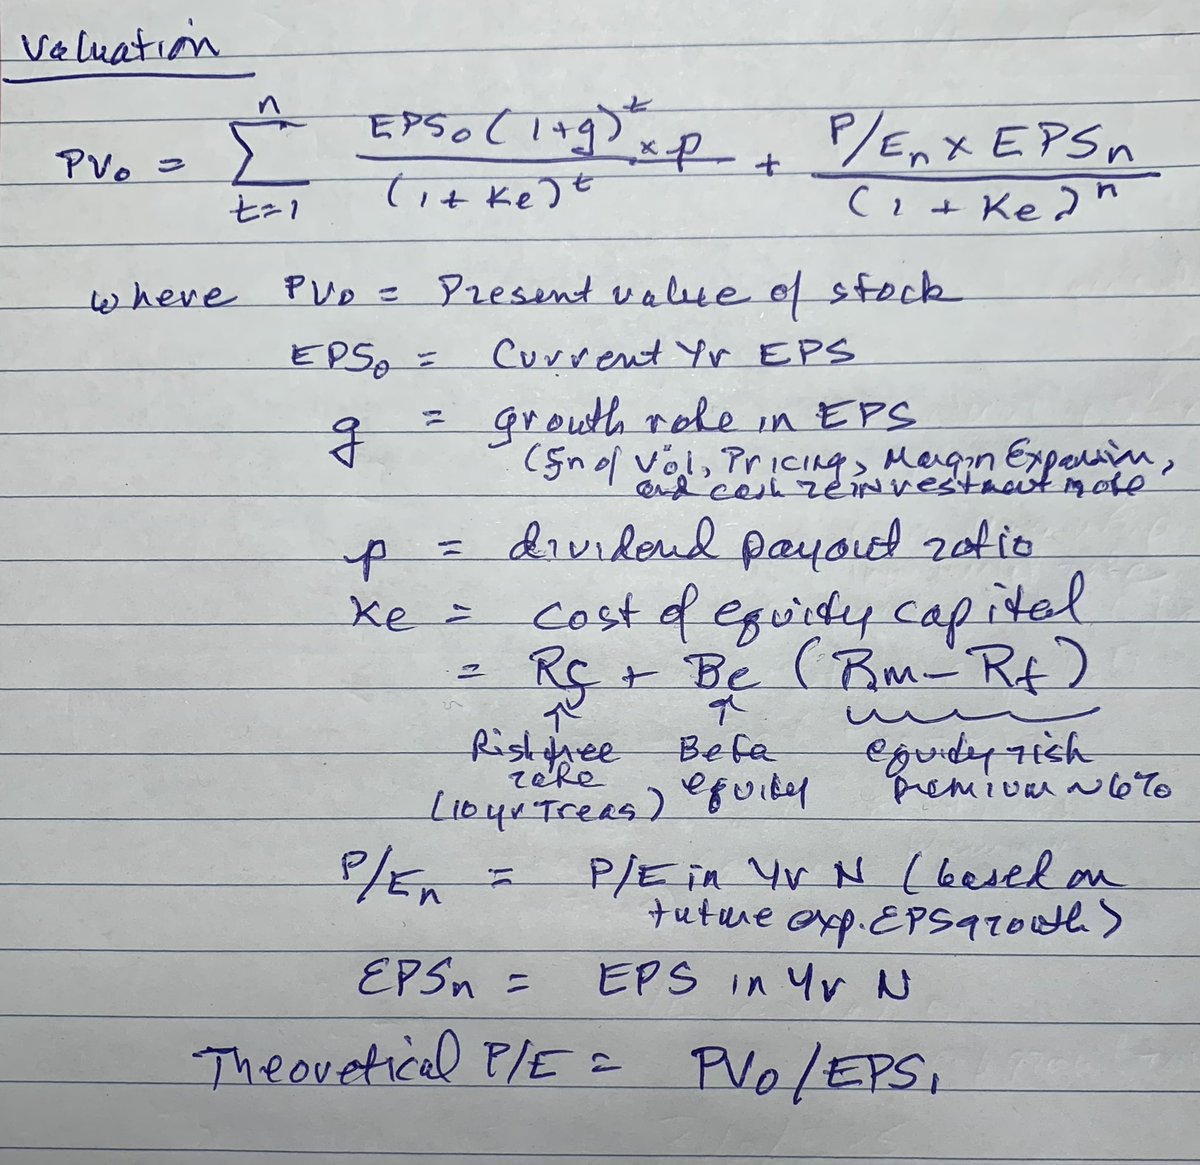 Valuation
PV₀ = ∑ₜ₌₁ⁿ EPS₀(1+g)ᵗ × p / (1 + Ke)ᵗ + P/Eₙ × EPSₙ / (1 + Ke)ⁿ
where PV₀ = Present value of stock
EPS₀ = Current Yr EPS
g = growth rate in EPS
(fn of Vol, Pricing, Margin Expansion,
and cash reinvestment rate
p = dividend payout ratio
Ke = cost of equity capital
= Rf + Be (Rm - Rf)
↑ ↑
Risk free Beta equity risk
rate equity premium ~ 6%
(10 yr Treas)
P/Eₙ = P/E in Yr N (based on
future exp. EPS growth)
EPSₙ = EPS in Yr N
Theoretical P/E = PV₀/EPS₁